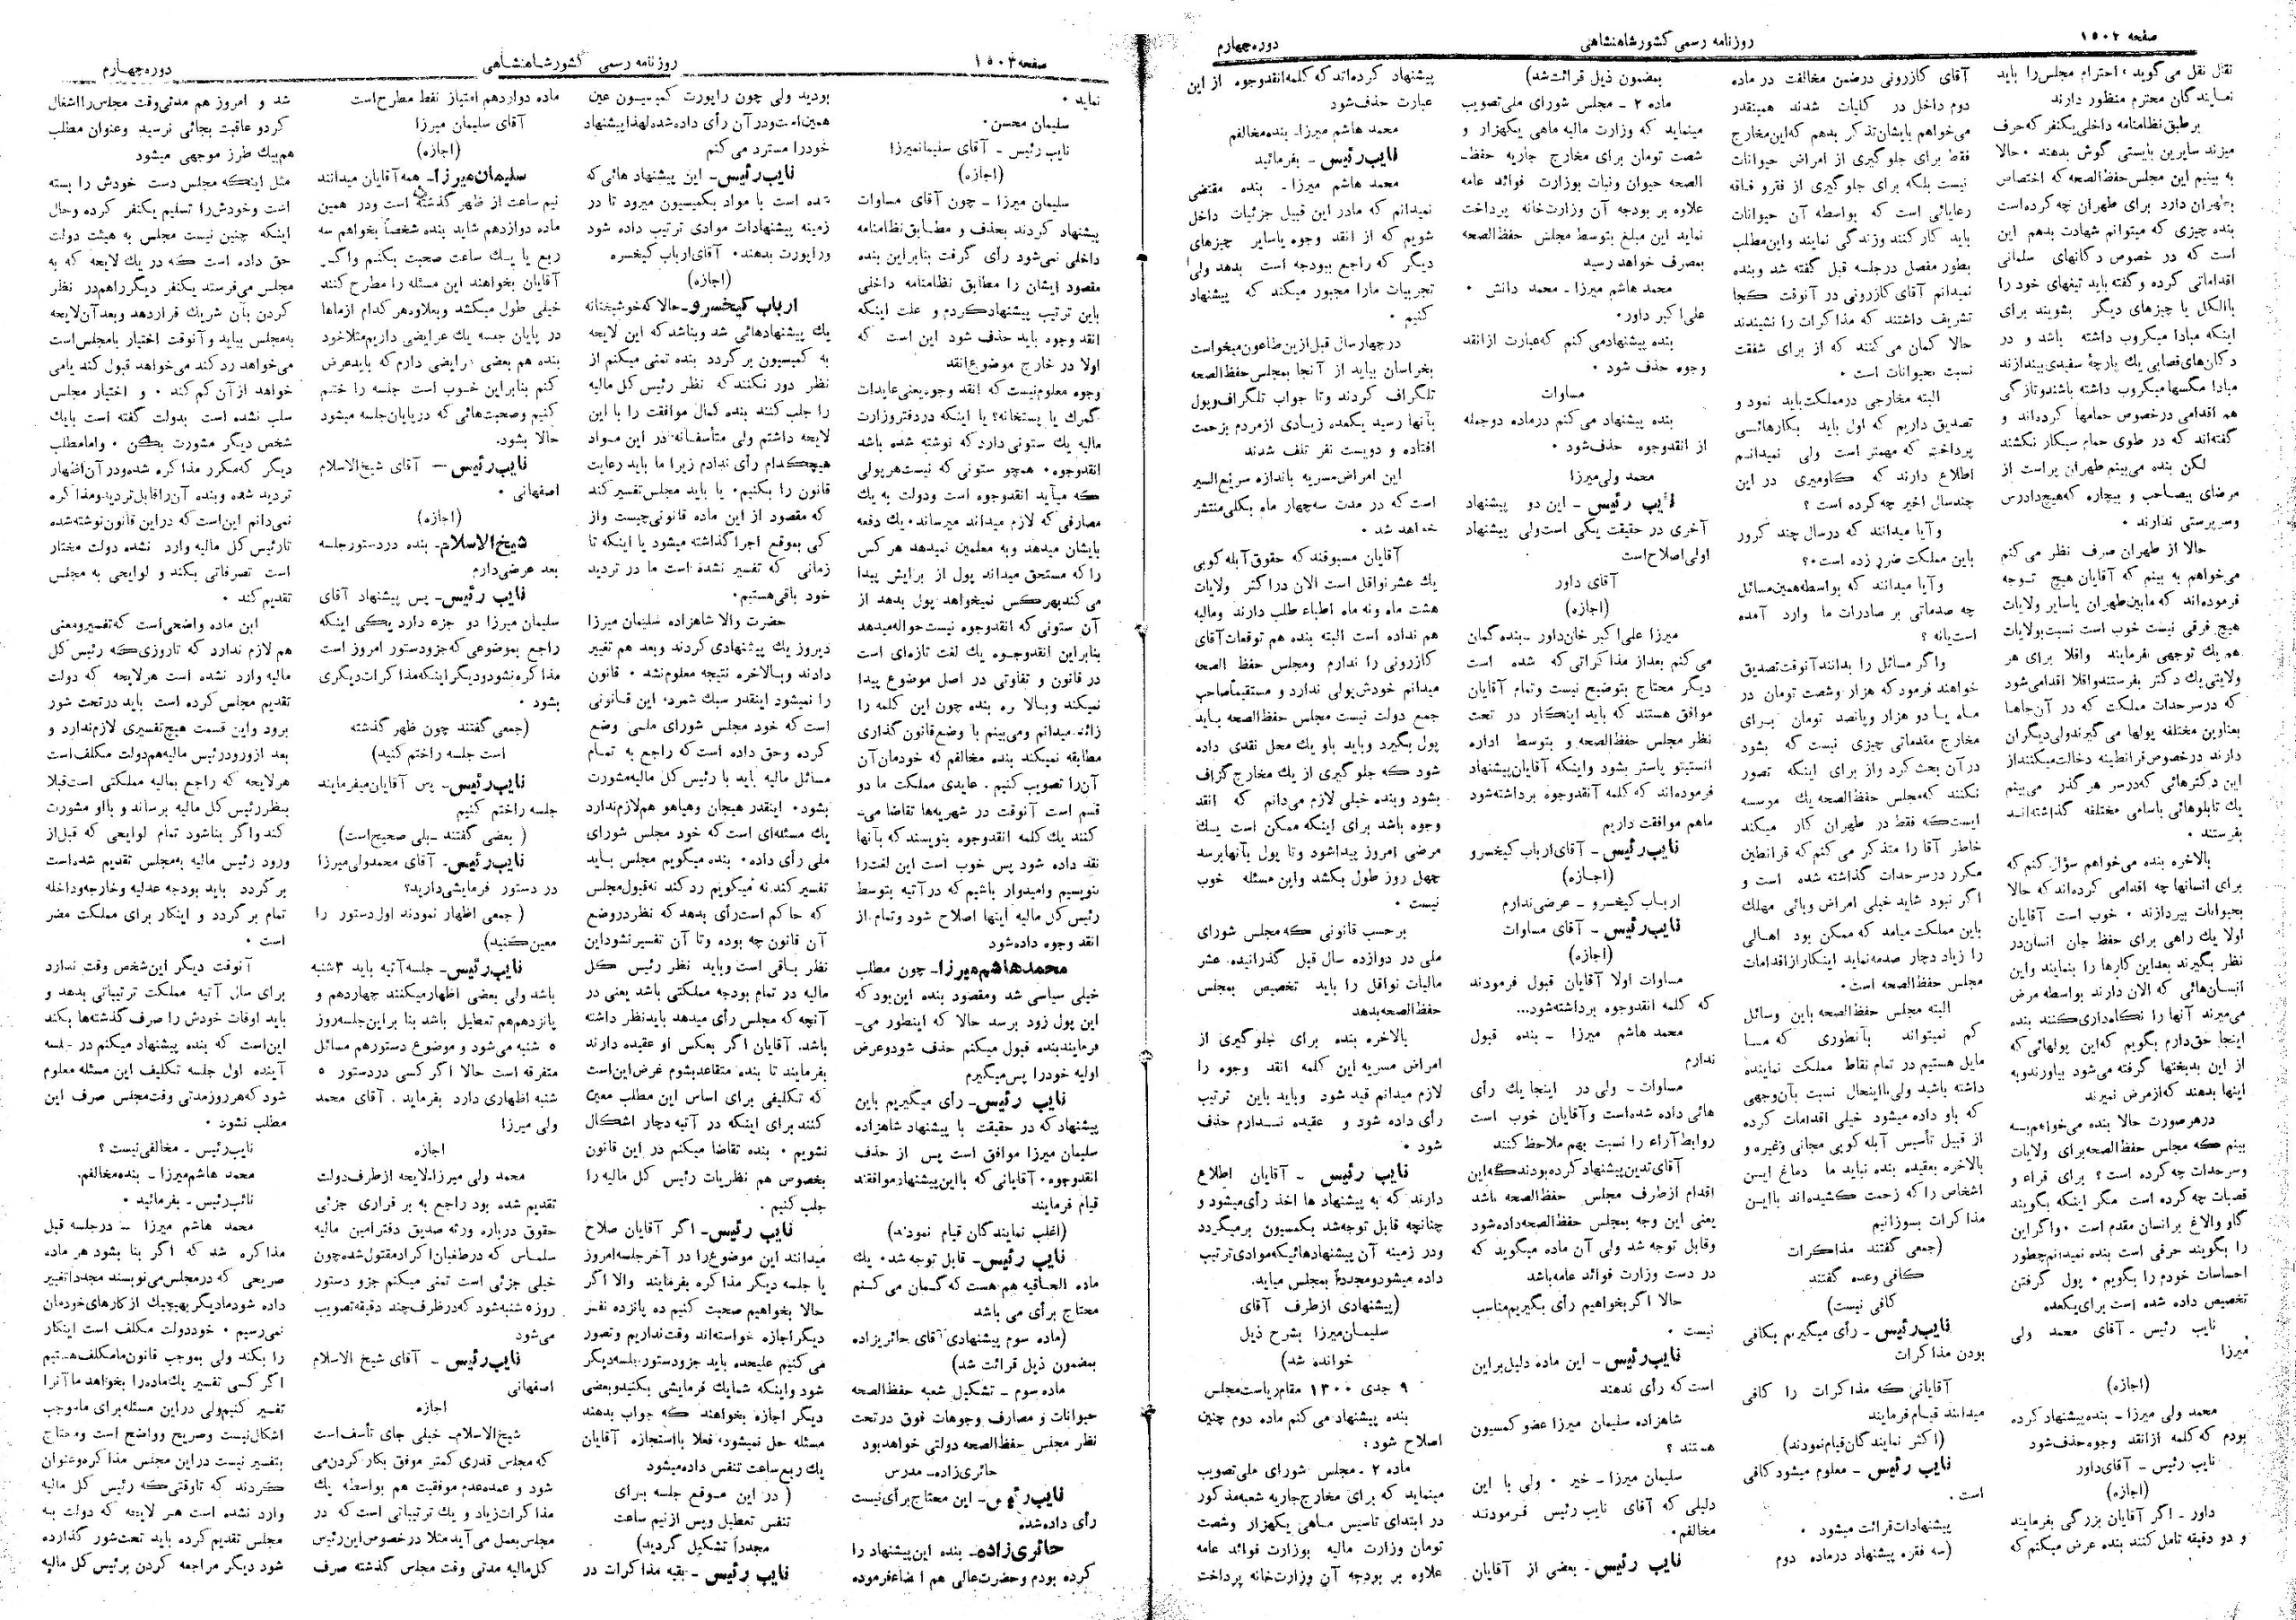 صفحه ۱۵۰۲
روزنامه رسمی کشور شاهنشاهی
دوره چهارم
نقال نقل می‌گوید، احترام مجلس را باید
نمایندگان محترم منظور دارند
بر طبق نظامنامه داخلی یکنفر که حرف
میزند سایرین بایستی گوش بدهند . حالا
به بینیم این مجلس حفظ‌الصحه که اختصاص
بطهران دارد برای طهران چه کرده است
بنده چیزی که میتوانم شهادت بدهم این
است که در خصوص دکانهای سلمانی
اقداماتی کرده و گفته باید تیغهای خود را
باالکل یا چیزهای دیگر بشویند برای
اینکه مبادا میکروب داشته باشد و در
دکان‌های قصابی یك پارچهٔ سفیدی بیندازند
مبادا مگسها میکروب داشته باشند و تازگی
هم اقدامی در خصوص حمامها کرده‌اند و
گفته‌اند که در طوی حمام سیگار نکشند
لکن بنده می‌بینم طهران پر است از
مرضای بیصاحب و بیچاره که هیچ دادرس
و سرپرستی ندارند .
حالا از طهران صرف نظر می کنم
می‌خواهم به بینم که آقایان هیچ توجه
فرموده‌اند که مابین طهران یا سایر ولایات
هیچ فرقی نیست خوب است نسبت بولایات
هم یك توجهی بفرمایند واقلا برای هر
ولایتی یك دکتر بفرستند و اقلا اقدامی شود
که در سرحدات مملکت که در آن جاها
بعناوین مختلفه پولها می گیرند ولی دیگران
دارند در خصوص قرانطینه دخالت میکنند از
این دکترهائی که در سر هر گذر می‌بینم
یك تابلوهائی باسامی مختلفه گذاشته‌اند
بفرستند .
بالاخره بنده می‌خواهم سؤال کنم که
برای انسانها چه اقدامی کرده‌اند که حالا
بحیوانات بپردازند . خوب است آقایان
اولا یك راهی برای حفظ جان انسان در
نظر بگیرند بعد این کارها را بنمایند واین
انسان‌هائی که الان دارند بواسطه مرض
می‌میرند آنها را نگاه‌داری کنند بنده
اینجا حق دارم بگویم که این پولهائی که
از این بدبختها گرفته می‌شود بیاورند و به
اینها بدهند که از مرض نمیرند
در هر صورت حالا بنده می‌خواهم به
بینم که مجلس حفظ‌الصحه برای ولایات
و سرحدات چه کرده است ؟ برای قراء و
قصبات چه کرده است مگر اینکه بگویند
گاو و الاغ بر انسان مقدم است . و اگر این
را بگویند حرفی است بنده نمیدانم چطور
احساسات خودم را بگویم . پول گرفتن
تخصیص داده شده است برای یکعده
نایب رئیس ـ آقای محمد ولی
میرزا
(اجازه)
محمد ولی میرزا ـ بنده پیشنهاد کرده
بودم که کلمه از انقد وجوه حذف شود
نایب رئیس ـ آقای داور
(اجازه)
داور ـ اگر آقایان بزرگی بفرمایند
و دو دقیقه تامل کنند بنده عرض میکنم که
آقای کازرونی در ضمن مخالفت در ماده
دوم داخل در کلیات شدند همینقدر
می‌خواهم بایشان تذکر بدهم که این مخارج
فقط برای جلوگیری از امراض حیوانات
نیست بلکه برای جلوگیری از فقر و فاقه
رعایائی است که بواسطه آن حیوانات
باید کار کنند و زندگی نمایند و این مطلب
بطور مفصل در جلسه قبل گفته شد و بنده
نمیدانم آقای کازرونی در آنوقت کجا
تشریف داشتند که مذاکرات را نشیندند
حالا گمان می‌کنند که از برای شفقت
نسبت بحیوانات است .
البته مخارجی در مملکت باید نمود و
تصدیق داریم که اول باید بکارهائی
پرداخت که مهمتر است ولی نمیدانم
اطلاع دارند که گاومیری در این
چند سال اخیر چه کرده است ؟
و آیا میدانند که در سال چند کرور
باین مملکت ضرر زده است؟
و آیا میدانند که بواسطه همین مسائل
چه صدماتی بر صادرات ما وارد آمده
است یا نه ؟
و اگر مسائل را بدانند آنوقت تصدیق
خواهند فرمود که هزار و شصت تومان در
ماه یا دو هزار و پانصد تومان برای
مخارج مقدماتی چیزی نیست که بشود
در آن بحث کرد و از برای اینکه تصور
نکنند که مجلس حفظ‌الصحه یك موسسه
ایست که فقط در طهران کار میکند
خاطر آقا را متذکر می کنم که قرانطین
مکرر در سرحدات گذاشته شده است و
اگر نبود شاید خیلی امراض وبائی مهلك
باین مملکت میامد که ممکن بود اهالی
را زیاد دچار صدمه نماید اینکار از اقدامات
مجلس حفظ‌الصحه است .
البته مجلس حفظ‌الصحه باین وسائل
کم نمیتواند بآنطوری که ما
مایل هستیم در تمام نقاط مملکت نماینده
داشته باشد ولی با اینحال نسبت بآن وجهی
که باو داده میشود خیلی اقدامات کرده
از قبیل تأسیس آبله کوبی مجانی وغیره و
بالاخره بعقیده بنده نباید ما دماغ این
اشخاص را که زحمت کشیده‌اند با این
مذاکرات بسوزانیم
(جمعی گفتند مذاکرات
کافی و عده گفتند
کافی نیست)
نایب رئیس ـ رأی میگیریم بکافی
بودن مذاکرات
آقایانی که مذاکرات را کافی
میدانند قیام فرمایند
(اکثر نمایندگان قیام نمودند)
نایب رئیس ـ معلوم میشود کافی
است .
پیشنهادات قرائت میشود .
(سه فقره پیشنهاد در ماده دوم
بمضمون ذیل قرائت شد)
ماده ۲ ـ مجلس شورای ملی تصویب
مینماید که وزارت مالیه ماهی یکهزار و
شصت تومان برای مخارج جاریه حفظ‌ـ
الصحه حیوان ونبات بوزارت فوائد عامه
علاوه بر بودجه آن وزارتخانه پرداخت
نماید این مبلغ بتوسط مجلس حفظ‌الصحه
بمصرف خواهد رسید
محمد هاشم میرزا ـ محمد دانش .
علی اکبر داور .
بنده پیشنهاد می کنم که عبارت از انقد
وجوه حذف شود .
مساوات
بنده پیشنهاد می کنم در ماده دو جمله
از انقد وجوه حذف شود .
محمد ولی میرزا
نایب رئیس ـ این دو پیشنهاد
آخری در حقیقت یکی است ولی پیشنهاد
اولی اصلاح است
آقای داور
(اجازه)
میرزا علی اکبر خان داور ـ بنده گمان
می کنم بعد از مذاکراتی که شده است
دیگر محتاج بتوضیح نیست و تمام آقایان
موافق هستند که باید اینکار در تحت
نظر مجلس حفظ‌الصحه و بتوسط اداره
انستیتو پاستر بشود و اینکه آقایان پیشنهاد
فرموده‌اند که کلمه آنقد وجوه برداشته شود
ما هم موافقت داریم
نایب رئیس ـ آقای ارباب کیخسرو
(اجازه)
ارباب کیخسرو ـ عرضی ندارم
نایب رئیس ـ آقای مساوات
(اجازه)
مساوات اولا آقایان قبول فرمودند
که کلمه انقد وجوه برداشته شود...
محمد هاشم میرزا ـ بنده قبول
ندارم
مساوات ـ ولی در اینجا یك رأی
هائی داده شده است و آقایان خوب است
روابط آراء را نسبت بهم ملاحظ کنند
آقای تدین پیشنهاد کرده بودند که این
اقدام از طرف مجلس حفظ‌الصحه باشد
یعنی این وجه بمجلس حفظ‌الصحه داده شود
وقابل توجه شد ولی آن ماده میگوید که
در دست وزارت فوائد عامه باشد
حالا اگر بخواهیم رأی بگیریم مناسب
نیست .
نایب رئیس ـ این ماده دلیل براین
است که رأی ندهند
شاهزاده سلیمان میرزا عضو کمسیون
هستند ؟
سلیمان میرزا ـ خیر . ولی با این
دلیلی که آقای نایب رئیس فرمودند
مخالفم.
نایب رئیس ـ بعضی از آقایان
پیشنهاد کرده‌اند که کلمه انقد وجوه از این
عبارت حذف شود
محمد هاشم میرزا ـ بنده مخالفم
نایب رئیس ـ بفرمائید
محمد هاشم میرزا ـ بنده مقتضی
نمیدانم که ما در این قبیل جزئیات داخل
شویم که از انقد وجوه یا سایر چیزهای
دیگر که راجع ببودجه است بدهد ولی
تجربیات ما را مجبور میکند که پیشنهاد
کنیم .
در چهار سال قبل ازین طاعون میخواست
بخراسان بیاید از آنجا بمجلس حفظ‌الصحه
تلگراف کردند و تا جواب تلگراف و پول
بآنها رسید یکعده زیادی از مردم بزحمت
افتاده و دویست نفر تلف شدند
این امراض مسریه باندازه سریع‌السیر
است که در مدت سه چهار ماه بکلی منتشر
خواهد شد .
آقایان مسبوقند که حقوق آبله کوبی
یك عشر نواقل است الان در اکثر ولایات
هشت ماه و نه ماه اطباء طلب دارند و مالیه
هم نداده است البته بنده هم توقعات آقای
کازرونی را ندارم ومجلس حفظ الصحه
میدانم خودش پولی ندارد و مستقیماً صاحب
جمع دولت نیست مجلس حفظ‌الصحه باید
پول بگیرد و باید باو یك محل نقدی داده
شود که جلوگیری از یك مخارج گزاف
بشود وبنده خیلی لازم می‌دانم که انقد
وجوه باشد برای اینکه ممکن است یك
مرضی امروز پیدا شود و تا پول بآنها برسد
چهل روز طول بکشد و این مسئله خوب
نیست .
بر حسب قانونی که مجلس شورای
ملی در دوازده سال قبل گذرانیده، عشر
مالیات نواقل را باید تخصیص بمجلس
حفظ‌الصحه بدهد
بالاخره بنده برای جلوگیری از
امراض مسریه این کلمه انقد وجوه را
لازم میدانم قید شود وباید باین ترتیب
رأی داده شود و عقیده ندارم حذف
شود .
نایب رئیس ـ آقایان اطلاع
دارند که به پیشنهاد ها اخذ رأی میشود و
چنانچه قابل توجه شد بکمسیون برمیگردد
ودر زمینه آن پیشنهادهائیکه موادی ترتیب
داده میشود و مجدداً بمجلس میاید.
(پیشنهادی از طرف آقای
سلیمان میرزا بشرح ذیل
خوانده شد)
۹ جدی ۱۳۰۰ مقام ریاست مجلس
بنده پیشنهاد می کنم ماده دوم چنین
اصلاح شود :
ماده ۲ ـ مجلس شورای ملی تصویب
مینماید که برای مخارج جاریه شعبه مذکور
در ابتدای تاسیس ماهی یکهزار وشصت
تومان وزارت مالیه بوزارت فوائد عامه
علاوه بر بودجه آن وزارتخانه پرداخت
صفحه ۱۵۰۳
روزنامه رسمی کشور شاهنشاهی
دوره چهارم
نماید .
سلیمان محسن.
نایب رئیس ـ آقای سلیمانمیرزا
(اجازه)
سلیمان میرزا ـ چون آقای مساوات
پیشنهاد کردند بحذف و مطابق نظامنامه
داخلی نمی‌شود رأی گرفت بنابراین بنده
مقصود ایشان را مطابق نظامنامه داخلی
باین ترتیب پیشنهاد کردم و علت اینکه
انقد وجوه باید حذف شود این است که
اولا در خارج موضوع انقد
وجوه معلوم نیست که انقد وجوه یعنی عایدات
گمرك یا پستخانه؟ یا اینکه در دفتر وزارت
مالیه یك ستونی دارد که نوشته شده باشد
انقد وجوه. همچو ستونی که نیست هر پولی
که میآید انقد وجوه است ودولت به یك
مصارفی که لازم میداند میرساند، یك دفعه
بایشان میدهد وبه معلمین نمیدهد هر کس
را که مستحق میداند پول از برایش پیدا
می کند بهر کس نمیخواهد پول بدهد از
آن ستونی که انقد وجوه نیست حواله میدهد
بنابراین انقد وجوه یك لغت تازه‌ای است
در قانون و تفاوتی در اصل موضوع پیدا
نمیکند وبالاخره بنده چون این کلمه را
زائد میدانم ومی‌بینم با وضع قانون گذاری
مطابقه نمیکند بنده مخالفم که خودمان آن
آن‌را تصویب کنیم . عایدی مملکت ما دو
قسم است آنوقت در شهریه‌ها تقاضا می‌ـ
کنند یك کلمه انقد وجوه بنویسند که بآنها
نقد داده شود پس خوب است این لغت را
ننویسیم وامیدوار باشیم که در آتیه بتوسط
رئیس کل مالیه اینها اصلاح شود و تمام از
انقد وجوه داده شود
محمد هاشم میرزا ـ چون مطلب
خیلی سیاسی شد ومقصود بنده این بود که
این پول زود برسد حالا که اینطور می‌ـ
فرمایند بنده قبول میکنم حذف شود و عرض
اولیه خود را پس میگیرم
نایب رئیس ـ رأی میگیریم باین
پیشنهاد که در حقیقت با پیشنهاد شاهزاده
سلیمان میرزا موافق است پس از حذف
انقد وجوه. آقایانی که با این پیشنهاد موافقند
قیام فرمایند
(اغلب نمایندگان قیام نمودند)
نایب رئیس ـ قابل توجه شد. یك
ماده الحاقیه هم هست که گمان می کنم
محتاج برأی می باشد
(ماده سوم پیشنهادی آقای حائریزاده
بمضمون ذیل قرائت شد)
ماده سوم ـ تشکیل شعبه حفظ‌الصحه
حیوانات و مصارف وجوهات فوق در تحت
نظر مجلس حفظ‌الصحه دولتی خواهد بود
حائری‌زاده ـ مدرس
نایب رئیس ـ این محتاج برأی نیست
رأی داده شده
حائری‌زاده ـ بنده این پیشنهاد را
کرده بودم و حضرتعالی هم امضاء فرموده
بودید ولی چون راپورت کمیسیون عین
همین است و در آن رأی داده شده لهذا پیشنهاد
خود را مسترد می کنم
نایب رئیس ـ این پیشنهاد هائی که
شده است با مواد بکمیسیون میرود تا در
زمینه پیشنهادات موادی ترتیب داده شود
و راپورت بدهند. آقای ارباب کیخسره
(اجازه)
ارباب کیخسرو ـ حالا که خوشبختانه
یك پیشنهادهائی شد وبناشد که این لایحه
به کمیسیون بر گردد بنده تمنی میکنم از
نظر دور نکنند که نظر رئیس کل مالیه
را جلب کنند بنده کمال موافقت را با این
لایحه داشتم ولی متأسفانه در این مواد
هیچکدام رأی ندادم زیرا ما باید رعایت
قانون را بکنیم. یا باید مجلس تفسیر کند
که مقصود از این ماده قانونی چیست واز
کی بموقع اجرا گذاشته میشود یا اینکه تا
زمانی که تفسیر نشده است ما در تردید
خود باقی هستیم.
حضرت والا شاهزاده سلیمان میرزا
دیروز یك پیشنهادی کردند وبعد هم تغییر
دادند وبالاخره نتیجه معلوم نشد . قانون
را نمیشود اینقدر سبك شمرد، این قانونی
است که خود مجلس شورای ملی وضع
کرده وحق داده است که راجع به تمام
مسائل مالیه باید با رئیس کل مالیه مشورت
بشود. اینقدر هیجان وهیاهو هم لازم ندارد
یك مسئله‌ای است که خود مجلس شورای
ملی رأی داده. بنده میگویم مجلس باید
تفسیر کند نه میگویم رد کند نه قبول مجلس
که حاکم است رأی بدهد که نظر در وضع
آن قانون چه بوده وتا آن تفسیر نشود این
نظر باقی است وباید نظر رئیس کل
مالیه در تمام بودجه مملکتی باشد یعنی در
آنچه که مجلس رأی میدهد باید نظر داشته
باشد. آقایان اگر بعکس او عقیده دارند
بفرمایند تا بنده متقاعد بشوم غرض این است
که تکلیفی برای اساس این مطلب معین
کنند برای اینکه در آتیه دچار اشکال
نشویم . بنده تقاضا میکنم در این قانون
بخصوص هم نظریات رئیس کل مالیه را
جلب کنیم .
نایب رئیس ـ اگر آقایان صلاح
میدانند این موضوع را در آخر جلسه امروز
یا جلسه دیگر مذاکره بفرمایند والا اگر
حالا بخواهیم صحبت کنیم ده پانزده نفر
دیگر اجازه خواسته‌اند وقت نداریم و تصور
می کنیم علیحده باید جزو دستور جلسه دیگر
شود و اینکه شما یك فرمایشی بکنید و بعضی
دیگر اجازه بخواهند که جواب بدهند
مسئله حل نمیشود، فعلا با استجازه آقایان
یك ربع ساعت تنفس داده میشود
( در این موقع جلسه برای
تنفس تعطیل و پس از نیم ساعت
مجدداً تشکیل گردید)
نایب رئیس ـ بقیه مذاکرات در
ماده دوازدهم امتیاز نفط مطرح است
آقای سلیمان میرزا
(اجازه)
سلیمان میرزا ـ همه آقایان میدانند
نیم ساعت از ظهر گذشته است ودر همین
ماده دوازدهم شاید بنده شخصاً بخواهم سه
ربع یا یك ساعت صحبت بکنم واگر
آقایان بخواهند این مسئله را مطرح کنند
خیلی طول میکشد و بعلاوه هر کدام از ماها
در پایان جلسه یك عرایضی داریم مثلا خود
بنده هم بعضی عرایضی دارم که باید عرض
کنم بنابراین خوب است جلسه را ختم
کنیم وصحبت‌هائی که در پایان جلسه میشود
حالا بشود.
نایب رئیس ـ آقای شیخ‌الاسلام
اصفهانی .
(اجازه)
شیخ‌الاسلام ـ بنده در دستور جلسه
بعد عرضی دارم
نایب رئیس ـ پس پیشنهاد آقای
سلیمان میرزا دو جزء دارد یکی اینکه
راجع بموضوعی که جزو دستور امروز است
مذاکره نشود و دیگر اینکه مذاکرات دیگری
بشود .
(جمعی گفتند چون ظهر گذشته
است جلسه را ختم کنید)
نایب رئیس ـ پس آقایان میفرمایند
جلسه را ختم کنیم
( بعضی گفتند ـ بلی صحیح است)
نایب رئیس ـ آقای محمد ولی میرزا
در دستور فرمایشی دارید؟
( جمعی اظهار نمودند اول دستور را
معین کنید)
نایب رئیس ـ جلسه آتیه باید ۳ شنبه
باشد ولی بعضی اظهار میکنند چهاردهم و
پانزدهم هم تعطیل باشد بنا براین جلسه روز
۵ شنبه می‌شود و موضوع دستور هم مسائل
متفرقه است حالا اگر کسی در دستور ۵
شنبه اظهاری دارد بفرماید . آقای محمد
ولی میرزا
اجازه
محمد ولی میرزا ـ لایحه از طرف دولت
تقدیم شده بود راجع به بر قراری جزئی
حقوق درباره ورثه صدیق دفتر امین مالیه
سلماس که در طغیان اکراد مقتول شده چون
خیلی جزئی است تمنی میکنم جزو دستور
روز ۵ شنبه شود که در ظرف چند دقیقه تصویب
می‌شود
نایب رئیس ـ آقای شیخ الاسلام
اصفهانی
اجازه
شیخ‌الاسلام ـ خیلی جای تأسف است
که مجلس قدری کمتر موفق بکار کردن می
شود و عمده عدم موفقیت هم بواسطه یك
مذاکرات زیاد و یك ترتیباتی است که در
مجلس بعمل می‌آید مثلا در خصوص این رئیس
کل مالیه مدتی وقت مجلس گذشته صرف
شد و امروز هم مدتی وقت مجلس را اشغال
کرد و عاقبت بجائی نرسید وعنوان مطلب
هم بیك طرز موجهی میشود
مثل اینکه مجلس دست خودش را بسته
است وخودش را تسلیم یکنفر کرده وحال
اینکه چنین نیست مجلس به هیئت دولت
حق داده است که در یك لایحه که به
مجلس می‌فرستد یکنفر دیگر را هم در نظر
کردن بآن شریك قرار دهد و بعد آن لایحه
به مجلس بیاید و آنوقت اختیار با مجلس است
می‌خواهد رد کند می‌خواهد قبول کند یا می
خواهد از آن کم کند . و اختیار مجلس
سلب نشده است بدولت گفته است بایك
شخص دیگر مشورت بکن . و اما مطلب
دیگر که مکرر مذاکره شده و در آن اظهار
تردید شده وبنده آن را قابل تردید و مذاکره
نمی‌دانم این است که در این قانون نوشته شده
تا رئیس کل مالیه وارد نشده دولت مختار
است تصرفاتی بکند و لوایحی به مجلس
تقدیم کند .
این ماده واضحی است که تفسیر ومعنی
هم لازم ندارد که تا روزی که رئیس کل
مالیه وارد نشده است هر لایحه که دولت
تقدیم مجلس کرده است باید در تحت شور
برود واین قسمت هیچ تفسیری لازم ندارد و
بعد از ورود رئیس مالیه هم دولت مکلف است
هر لایحه که راجع بمالیه مملکتی است قبلا
بنظر رئیس کل مالیه برساند و با او مشورت
کند واگر بناشود تمام لوایحی که قبل از
ورود رئیس مالیه به مجلس تقدیم شده است
بر گردد باید بودجه عدلیه وخارجه وداخله
تمام بر گردد و اینکار برای مملکت مضر
است .
آنوقت دیگر این شخص وقت ندارد
برای سال آتیه مملکت ترتیباتی بدهد و
باید اوقات خودش را صرف گذشته‌ها بکند
این است که بنده پیشنهاد میکنم در جلسه
آینده اول جلسه تکلیف این مسئله معلوم
شود که هر روز مدتی وقت مجلس صرف این
مطلب نشود .
نایب رئیس ـ مخالفی نیست ؟
محمد هاشم میرزا ـ بنده مخالفم.
نائب رئیس ـ بفرمائید .
محمد هاشم میرزا ـ در جلسه قبل
مذاکره شد که اگر بنا بشود هر ماده
صریحی که در مجلس می‌نویسند مجدداً تغییر
داده شود ما دیگر بهیچیك از کارهای خودمان
نمی‌رسیم . خود دولت مکلف است اینکار
را بکند ولی بموجب قانون ما مکلف هستیم
اگر کسی تفسیر یك ماده را بخواهد ما آنرا
تفسیر کنیم ولی در این مسئله برای ما موجب
اشکال نیست وصریح وواضح است ومحتاج
بتفسیر نیست در این مجلس مذاکره و عنوان
کردند که تا وقتی که رئیس کل مالیه
وارد نشده است هر لایحه که دولت به
مجلس تقدیم کرده باید تحت شور گذارده
شود دیگر مراجعه کردن برئیس کل مالیه